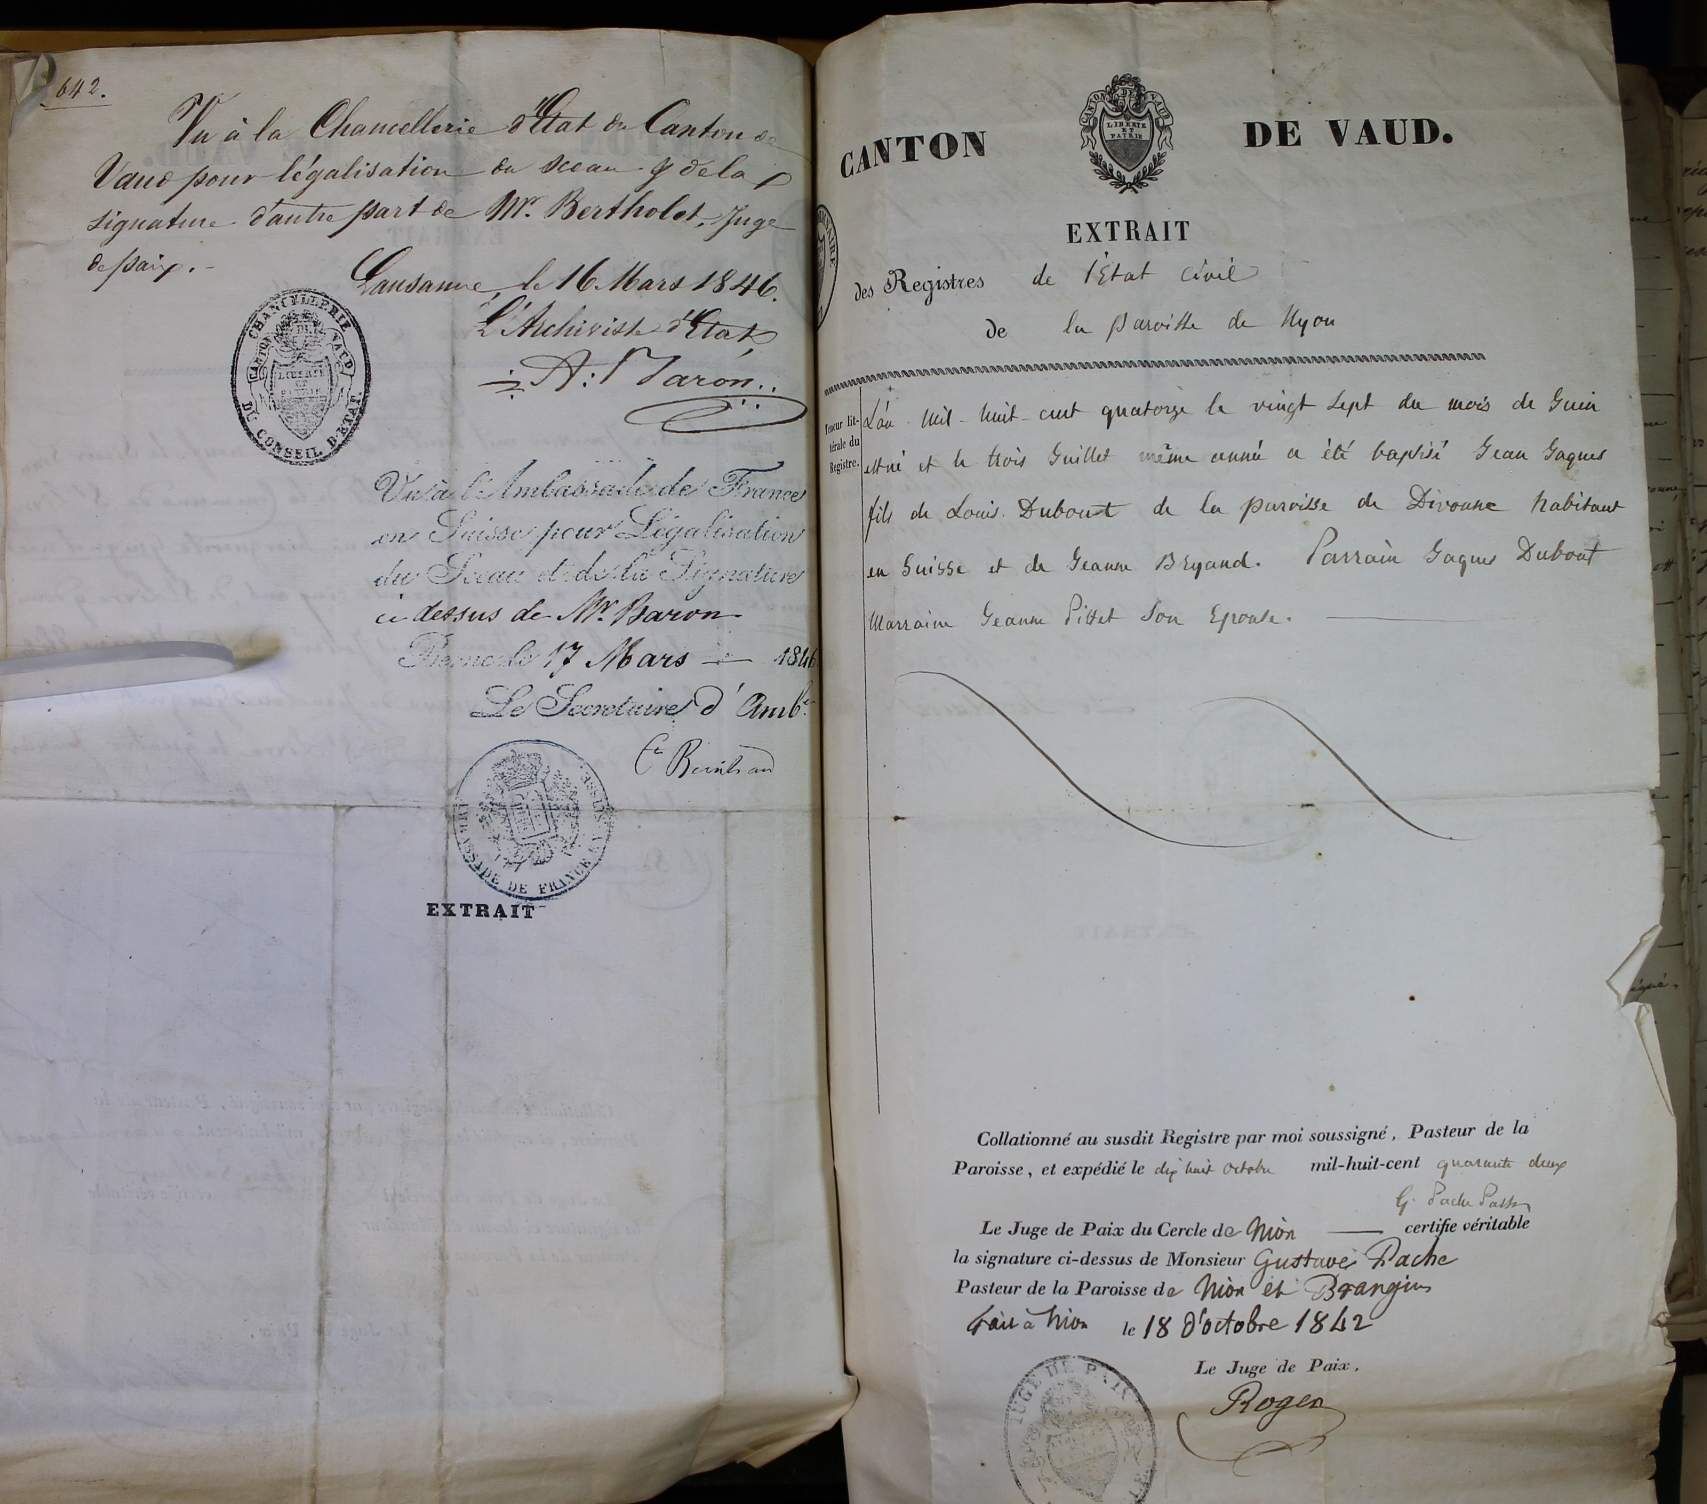 642.
Vu à la Chancellerie d'Etat du Canton de
Vaud pour légalisation du sceau & de la
signature d'autre part de Mr. Bertholet, Juge
de paix.
Lausanne, le 16 Mars 1846.
L'Archiviste d'Etat,
A: Baron
CHANCELLERIE
DU CONSEIL D'ETAT
CANTON DE VAUD
LIBERTE
ET
PATRIE
Vu à l'Ambassade de France
en Suisse pour Légalisation
du Sceau et de la Signature
ci dessus de Mr. Baron
Berne le 17 Mars 1846
Le Secrétaire d'Amb.
AMBASSADE DE FRANCE EN SUISSE
EXTRAIT
CANTON DE VAUD
LIBERTE
ET
PATRIE
CANTON DE VAUD.
EXTRAIT
des Registres de l'Etat civil
de la paroisse de Nyon
Teneur lit-
térale du
Registre.
L'an mil-huit-cent quatorze le vingt sept du mois de Juin
est né et le trois Juillet même année a été baptisé Jean Jaques
fils de Louis Dubout de la paroisse de Divonne habitant
en Suisse et de Jeanne Beyand. Parrain Jaques Dubout
Marraine Jeanne Pittet son Epouse.
Collationné au susdit Registre par moi soussigné, Pasteur de la
Paroisse, et expédié le dix huit octobre mil-huit-cent quarante deux
G. Pache Past
Le Juge de Paix du Cercle de Nion certifie véritable
la signature ci-dessus de Monsieur Gustave Pache
Pasteur de la Paroisse de Nion et Prangins
Fait à Nion le 18 d'octobre 1842
Le Juge de Paix,
Roger
JUGE DE PAIX